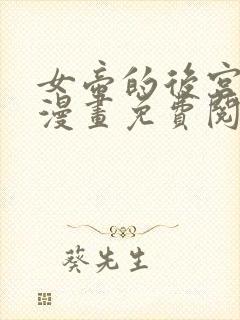 女帝的後宮
漫畫免費閱
葵先生